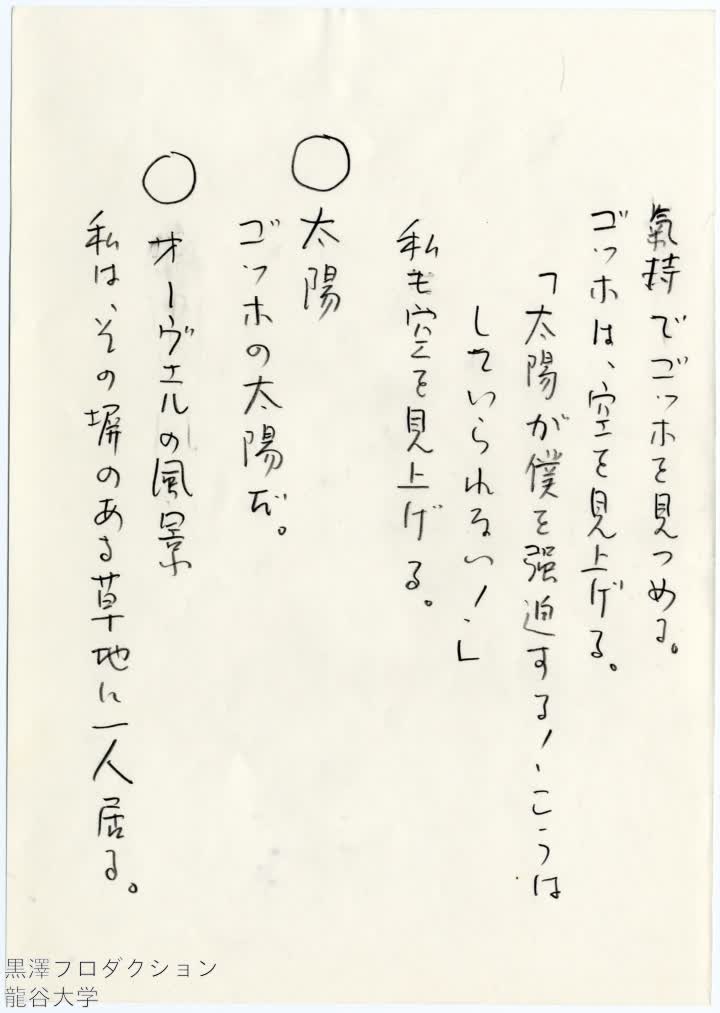 氣持でゴッホを見つめる。
ゴッホは、空を見上げる。
「太陽が僕を强迫する！こうは
していられない！」
私も空を見上げる。
○ 太陽
ゴッホの太陽だ。
○ オーヴェルの風景
私は、その塀のある草地に一人居る。
黒澤プロダクション
龍谷大学